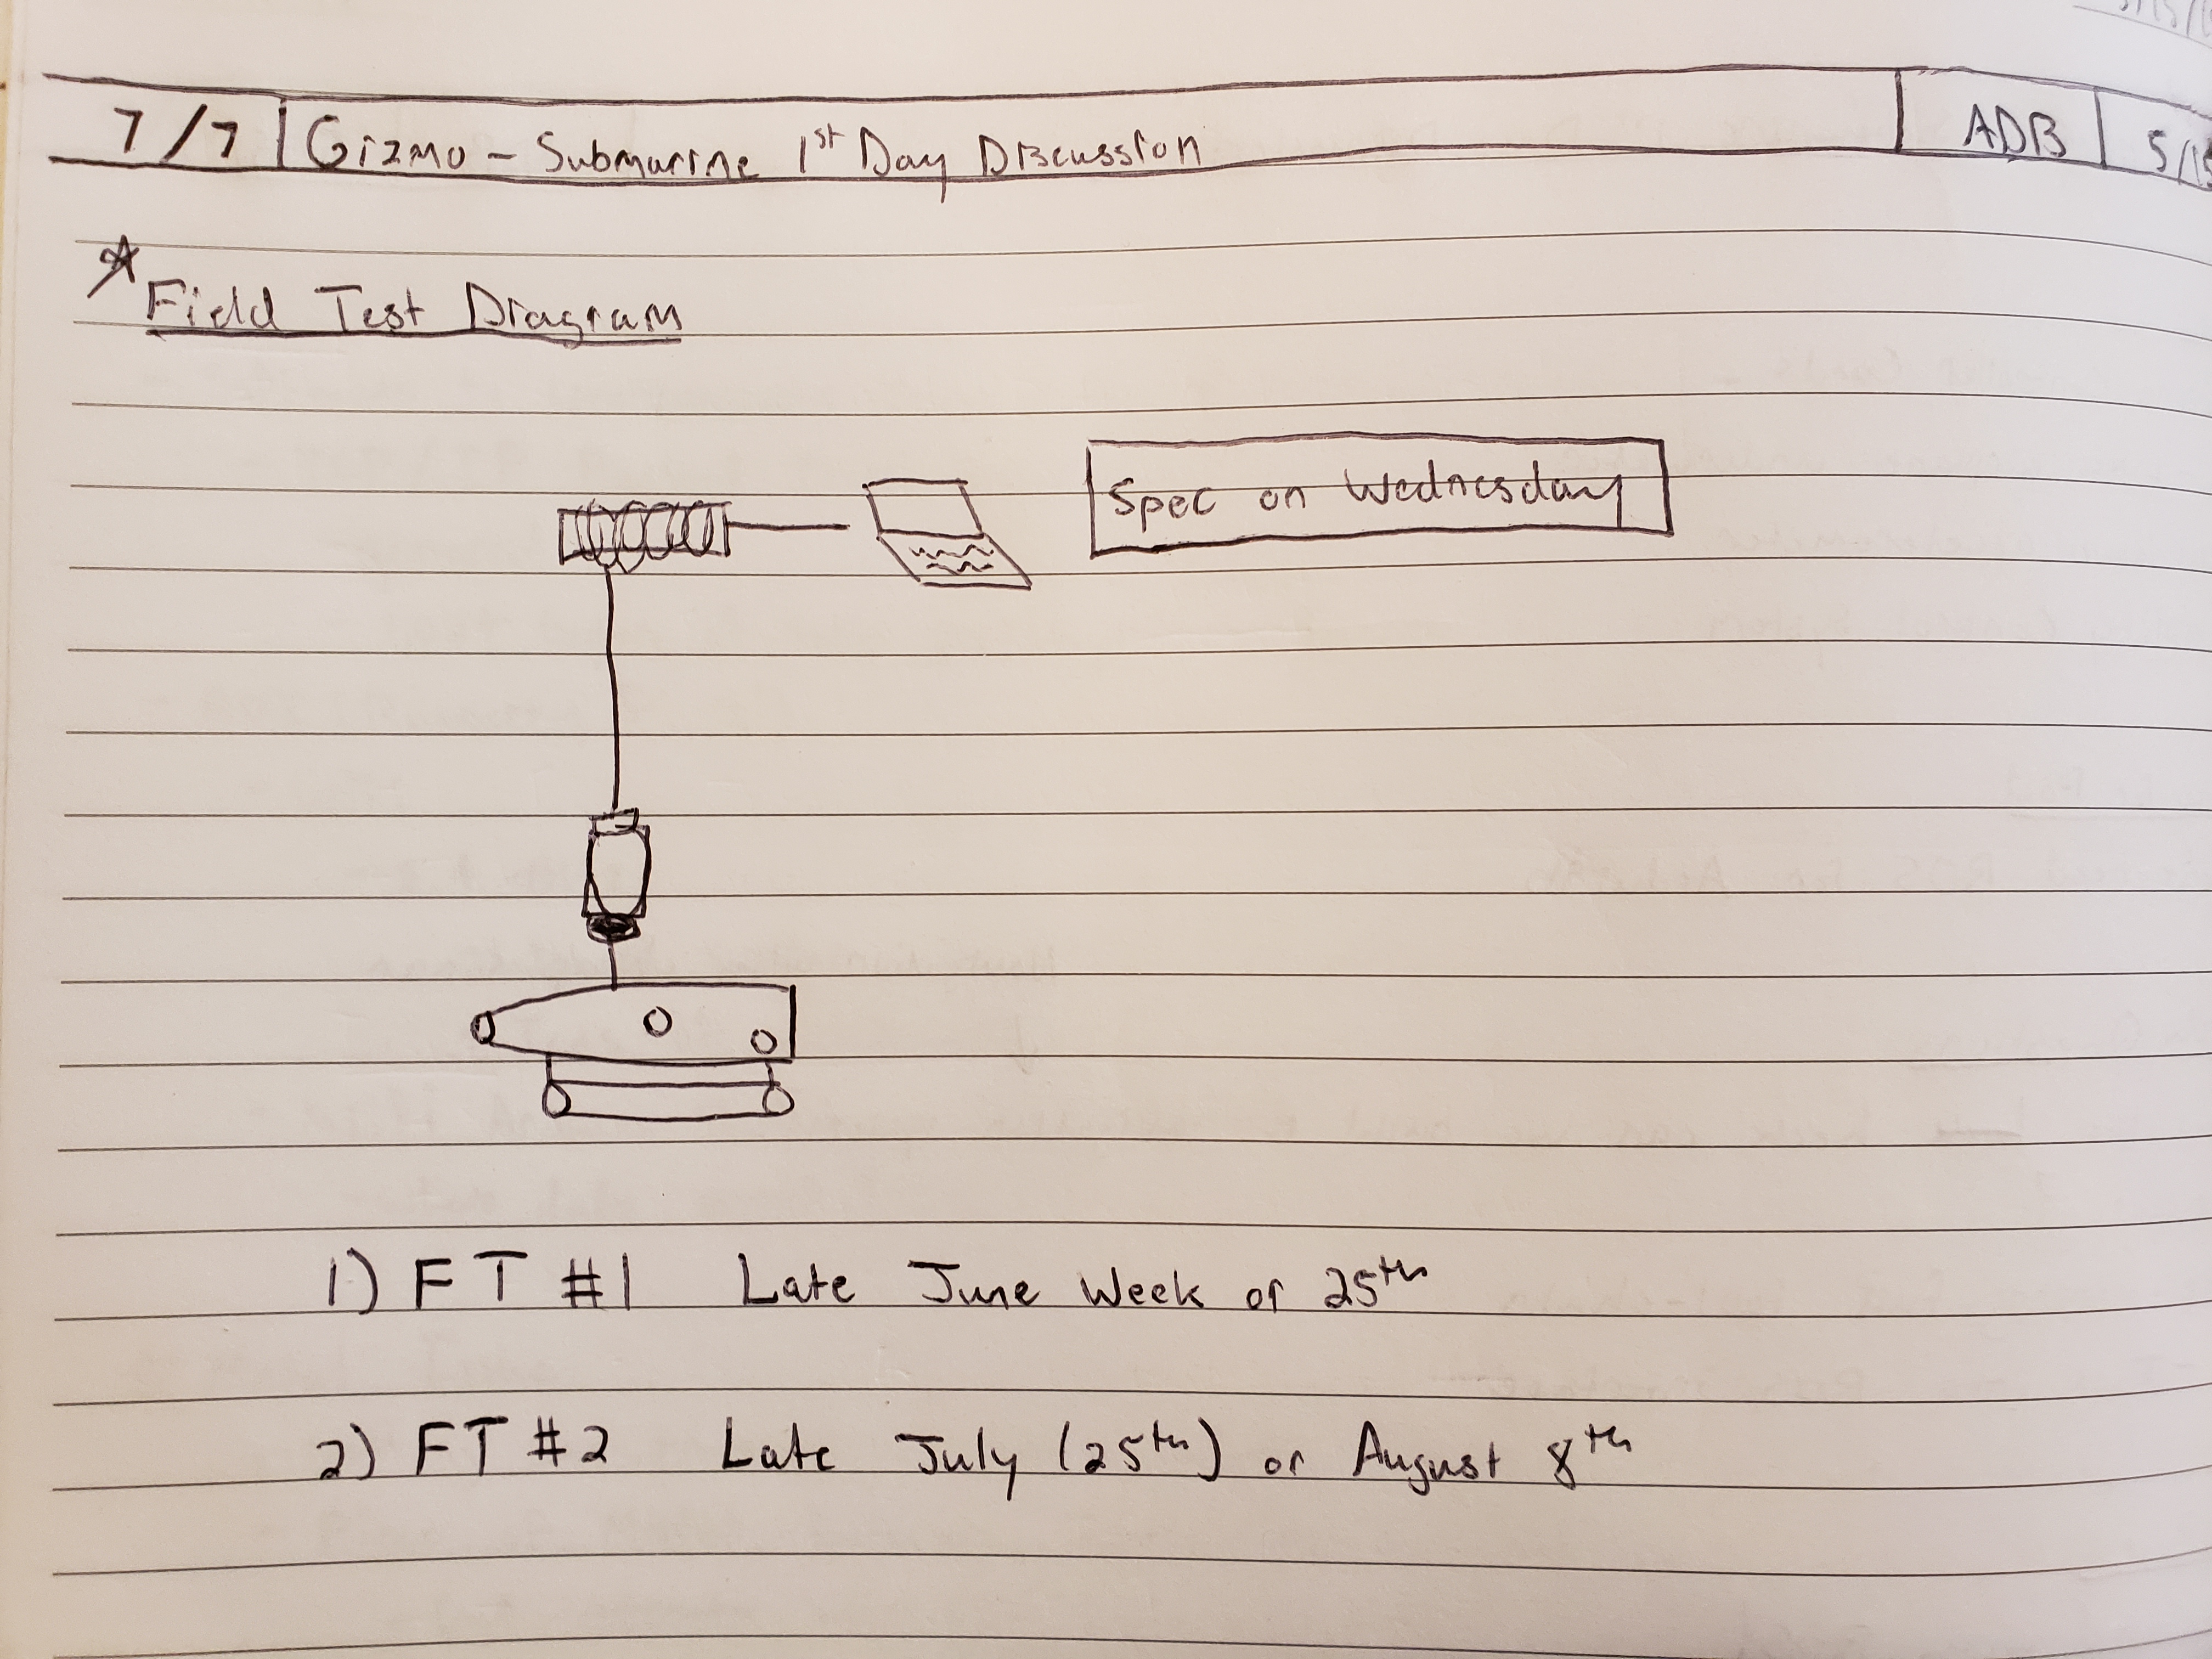 7/7 Gizmo - Submarine 1st Day Discussion ADB
Field Test Diagram
Spec on Wednesday
1) FT #1 Late June Week of 25th
2) FT #2 Late July (25th) or August 8th